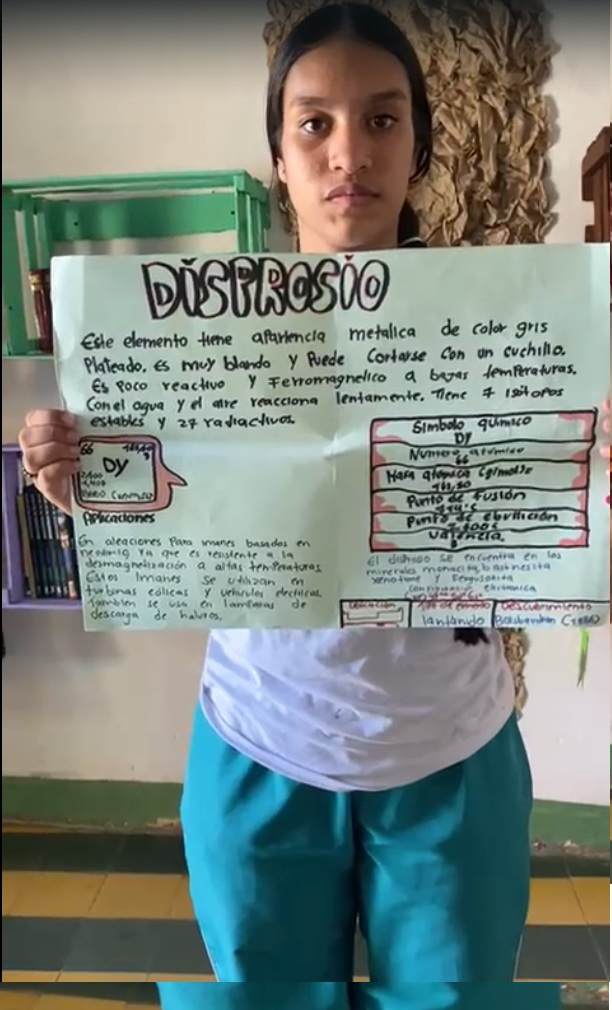 DISPROSIO
Este elemento tiene apariencia metalica de color gris
Plateado. Es muy blando y Puede Cortarse Con un cuchillo.
Es Poco reactivo y Ferromagnelico a bajas temperaturas.
Con el agua y el aire reacciona lentamente. Tiene 7 isótopos
estables y 27 radiactivos.
66
DY
Aplicaciones
En aleaciones Para imanes basados en
neodimio, Ya que es resistente a la
desmagnetización a altas temperaturas
Estos Imanes se utilizan en
turbinas eólicas y vehiculos electricos.
Tambien se usa en lamparas de
descarga de haluros.
Simbolo químico
DY
Numero atomico
66
Masa atomica (g/mol)
Punto de fusión
Punto de ebullición
Valencia
3
El disprosio se encuentra en los
minerales monacita, bastnesita
xenotime y Fergusonita
Configuracion electronica
Ubicación
lantánido
Descubrimiento
Boisbaudran (1886)